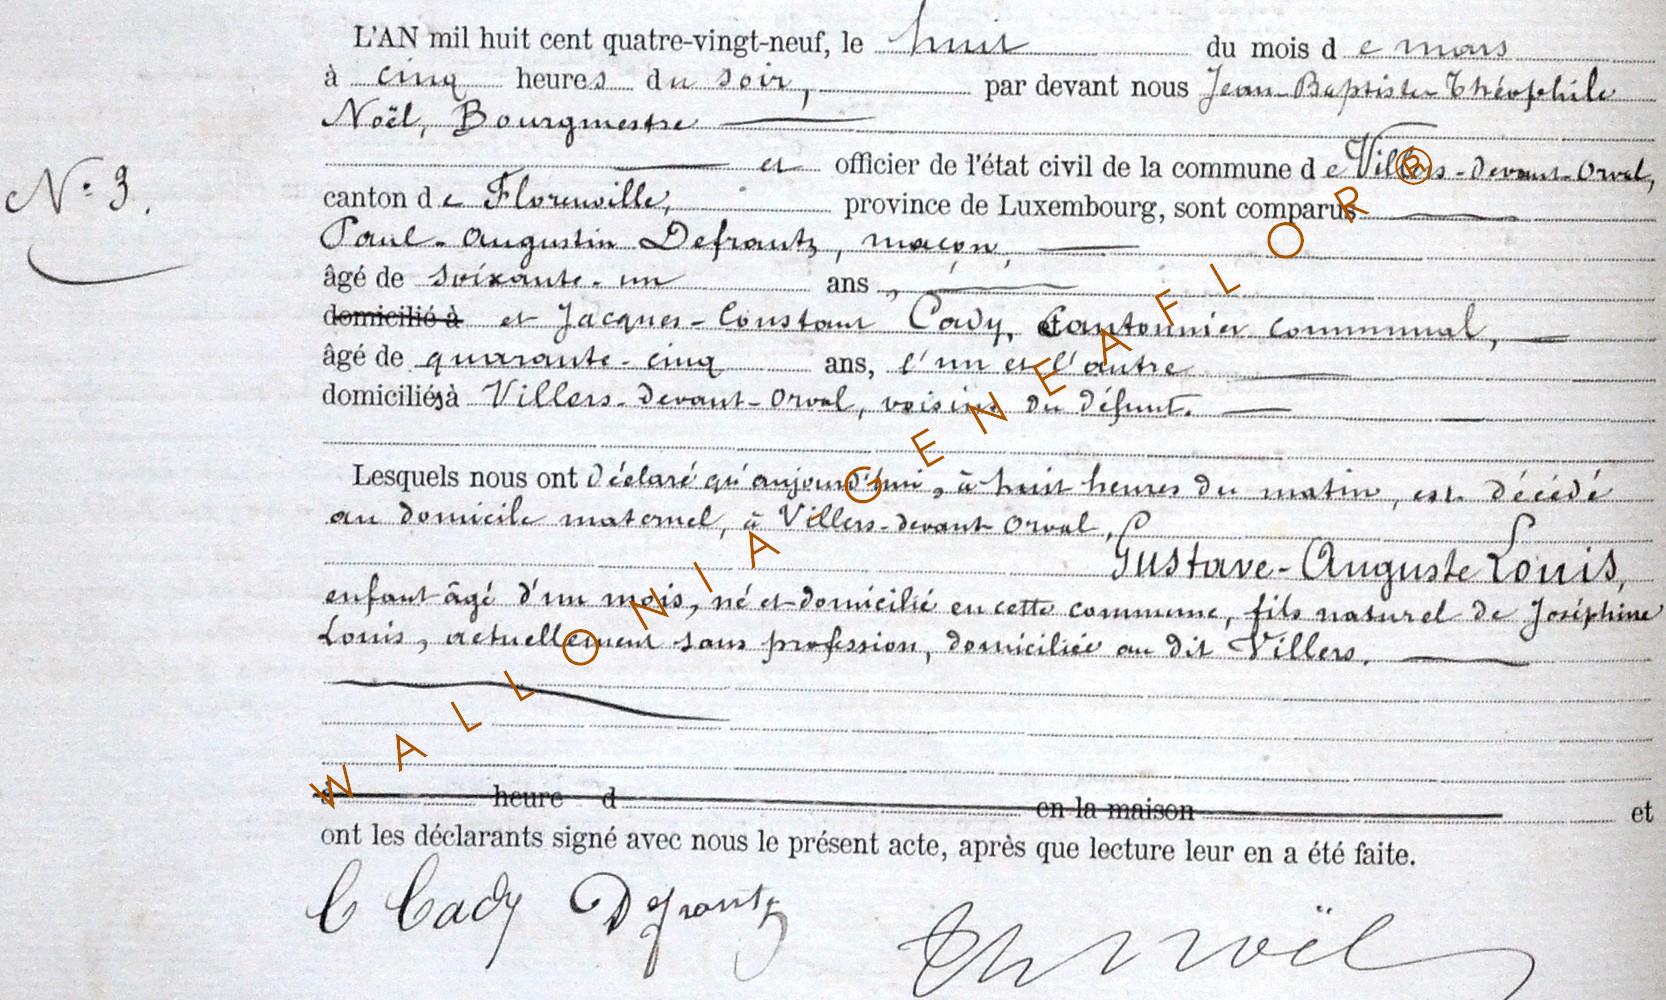 L'AN mil huit cent quatre-vingt-neuf, le huit du mois de mars
à cinq heures du soir, par devant nous Jean-Baptiste Théophile
Noël, Bourgmestre
et officier de l'état civil de la commune de Villers-devant-Orval,
N° 3.
canton de Florenville, province de Luxembourg, sont comparus
Paul-Augustin Defrantz, maçon,
âgé de soixante-un ans,
domicilié à et Jacques-Constant Cady, Cantonnier communal,
âgé de quarante-cinq ans, l'un et l'autre
domiciliés à Villers-devant-Orval, voisins du défunt.
Lesquels nous ont déclaré qu'aujourd'hui, à huit heures du matin, est décédé
au domicile maternel, à Villers-devant-Orval,
Gustave-Auguste Louis,
enfant âgé d'un mois, né et domicilié en cette commune, fils naturel de Joséphine
Louis, actuellement sans profession, domiciliée au dit Villers.
heure d en la maison et
ont les déclarants signé avec nous le présent acte, après que lecture leur en a été faite.
C Cady Defrantz
Th Noël
WALLONIA GENEAFLOR®